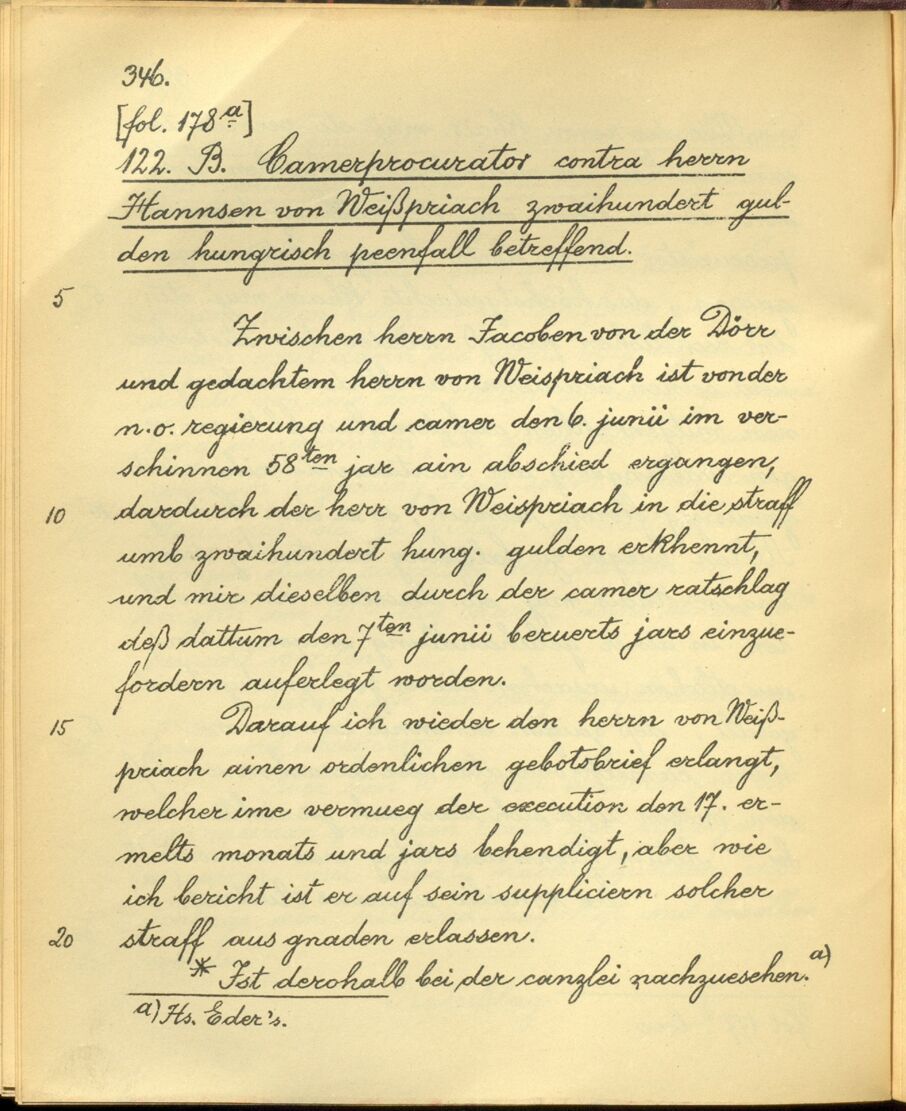 346.
[fol. 178a]
122. B. Camerprocurator contra herrn
Hannsen von Weißpriach zwaihundert gul-
den hungrisch peenfall betreffend.
5
Zwischen herrn Jacoben von der Dörr
und gedachtem herrn von Weispriach ist von der
n.o. regierung und camer den 6. junii im ver-
schinnen 58ten jar ain abschied ergangen,
10 dardurch der herr von Weispriach in die straff
umb zwaihundert hung. gulden erkhennt,
und mir dieselben durch der camer ratschlag
deß dattum den 7ten junii beruerts jars einzue-
fordern auferlegt worden.
15 Darauf ich wieder den herrn von Weiß-
priach ainen ordenlichen gebotsbrief erlangt,
welcher ime vermueg der execution den 17. er-
melts monats und jars behendigt, aber wie
ich bericht ist er auf sein suppliciern solcher
20 straff aus gnaden erlassen.
* Ist derohalb bei der canzlei nachzuesehen.a)
a) Hs. Eder's.